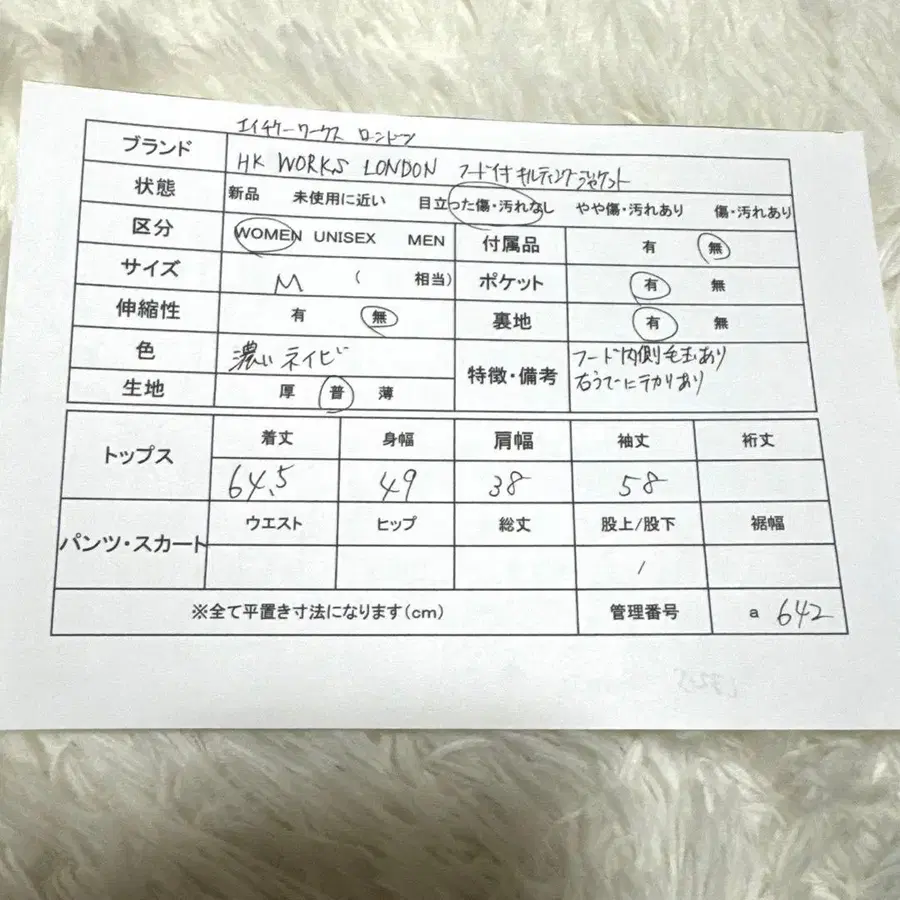 エイチケーワークス ロンドン
ブランド HK WORKS LONDON フード付キルティングジャケット
状態 新品 未使用に近い 目立った傷・汚れなし やや傷・汚れあり 傷・汚れあり
区分 WOMEN UNISEX MEN 付属品 有 無
サイズ M ( 相当) ポケット 有 無
伸縮性 有 無 裏地 有 無
色 濃いネイビー 特徴・備考 フード内側毛玉あり
右うでにテカりあり
生地 厚 普 薄
トップス 着丈 身幅 肩幅 袖丈 裄丈
64.5 49 38 58
パンツ・スカート ウエスト ヒップ 総丈 股上/股下 裾幅
/
※全て平置き寸法になります(cm) 管理番号 a 642